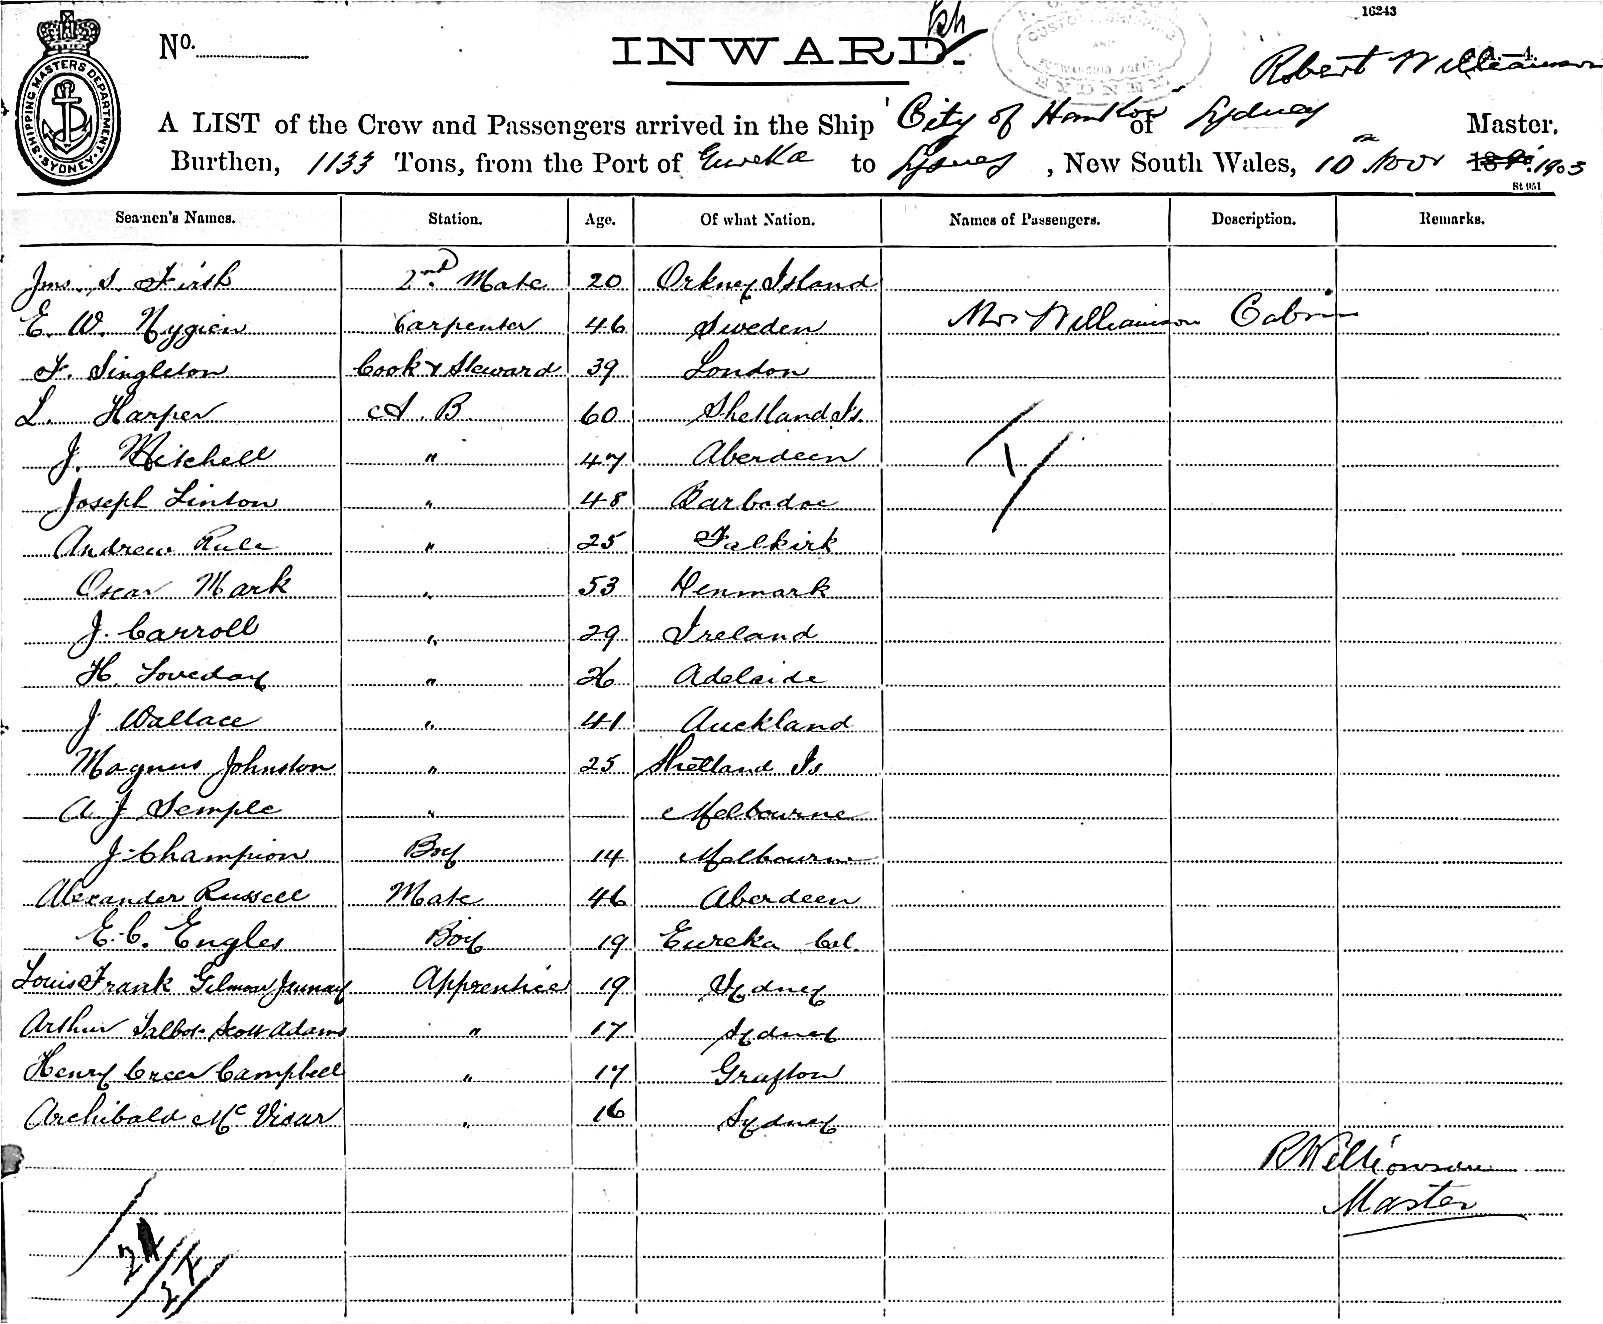 16243
No.
INWARD.
SHIPPING MASTERS DEPARTMENT SYDNEY
CUSTOM
SYDNEY
Robert Williamson
A LIST of the Crew and Passengers arrived in the Ship "City of Hankow" of Sydney Master,
Burthen, 1133 Tons, from the Port of Eureka to Sydney, New South Wales, 10 Novr 1903
St 951
Seamen's Names. Station. Age. Of what Nation. Names of Passengers. Description. Remarks.
Jms. S. Firth 2nd. Mate 20 Orkney Island
E. W. Nygren Carpenter 46 Sweden Mrs Williamson Cabin
F. Singleton Cook & Steward 39 London
L. Harper A. B. 60 Shetland Is.
J. Mitchell " 47 Aberdeen
Joseph Linton " 48 Barbadoe
Andrew Rule " 25 Falkirk
Oscar Mark " 53 Denmark
J. Carroll " 29 Ireland
H. Loveday " 26 Adelaide
J Wallace " 41 Auckland
Magnus Johnston " 25 Shetland Is
A J Semple " Melbourne
J. Champion Boy 14 Melbourne
Alexander Russell Mate 46 Aberdeen
E. C. Engles Boy 19 Eureka Cal.
Louis Frank Gilmour Jaunay Apprentice 19 Sydney
Arthur Talbot Scott Adams " 17 Sydney
Henry Creer Campbell " 17 Grafton
Archibald McVicar " 16 Sydney
R Williamson
Master